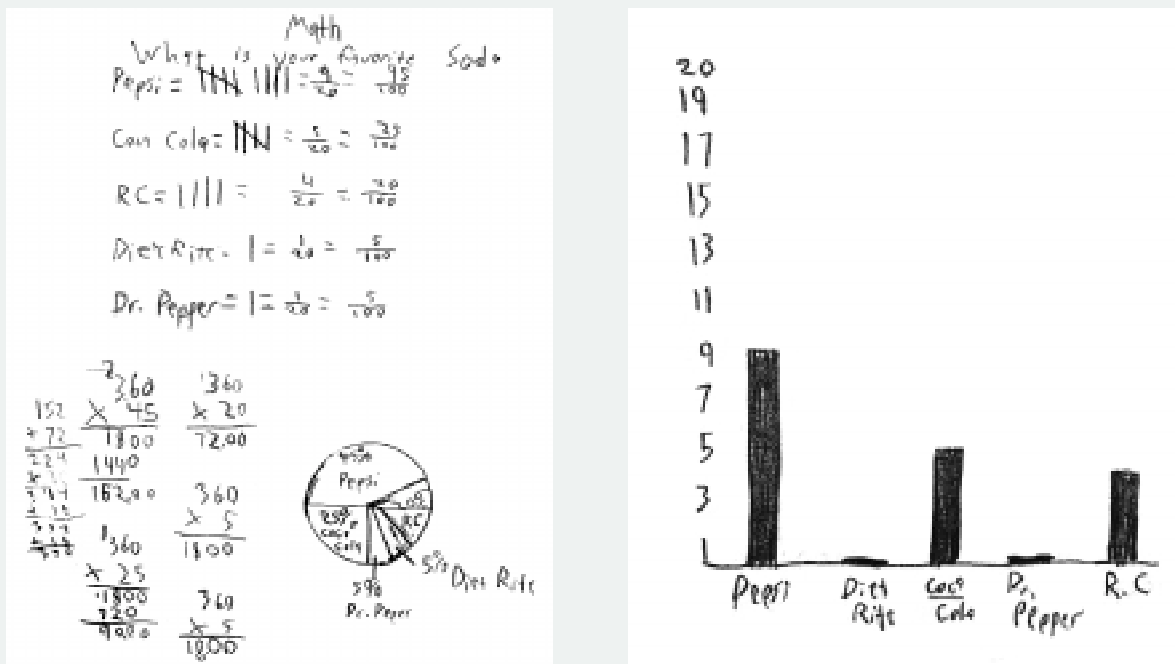 Math
What is your favorite Soda
Pepsi = 9/20 = 45/100
= 5/20 = 25/100
RC = 4/20 = 20/100
Diet Rite = 1/20 = 5/100
Dr. Pepper = 1/20 = 5/100
360
x 45
1800
1440
162.00
360
x 20
72.00
360
x 25
1800
720
360
x 5
1800
360
x 5
1800
45%
Pepsi
25%
Coca
Cola
RC
5% Diet Rite
5%
20
19
17
15
13
11
9
7
5
3
1
Pepsi
Diet
Rite
Coca
Cola
Dr.
Pepper
R.C